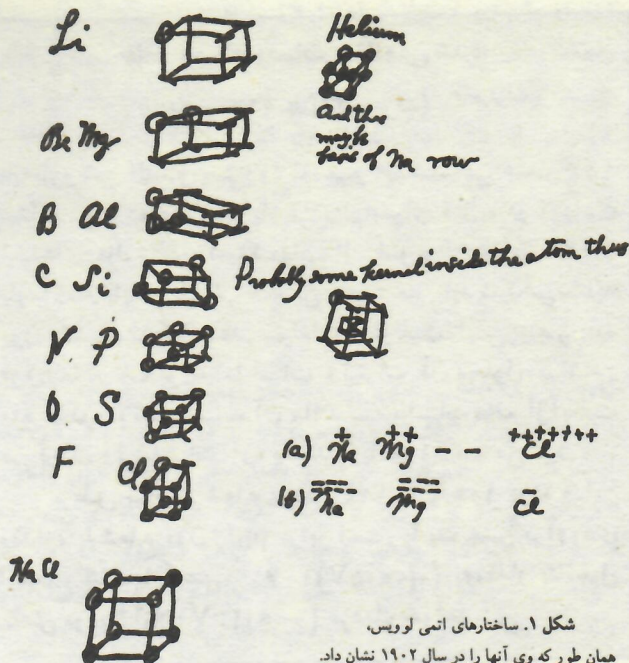 Li
Helium
and this
maybe
basis of Na row
Be Mg
B Al
C Si
Probably some kernel inside the atom thus
N P
O S
F Cl
+ ++ +++++++
(a) Na Mg - - Cl
(b) Na Mg Cl
Na Cl
شکل ۱. ساختارهای اتمی لوویس،
همان طور که وی آنها را در سال ۱۹۰۲ نشان داد.